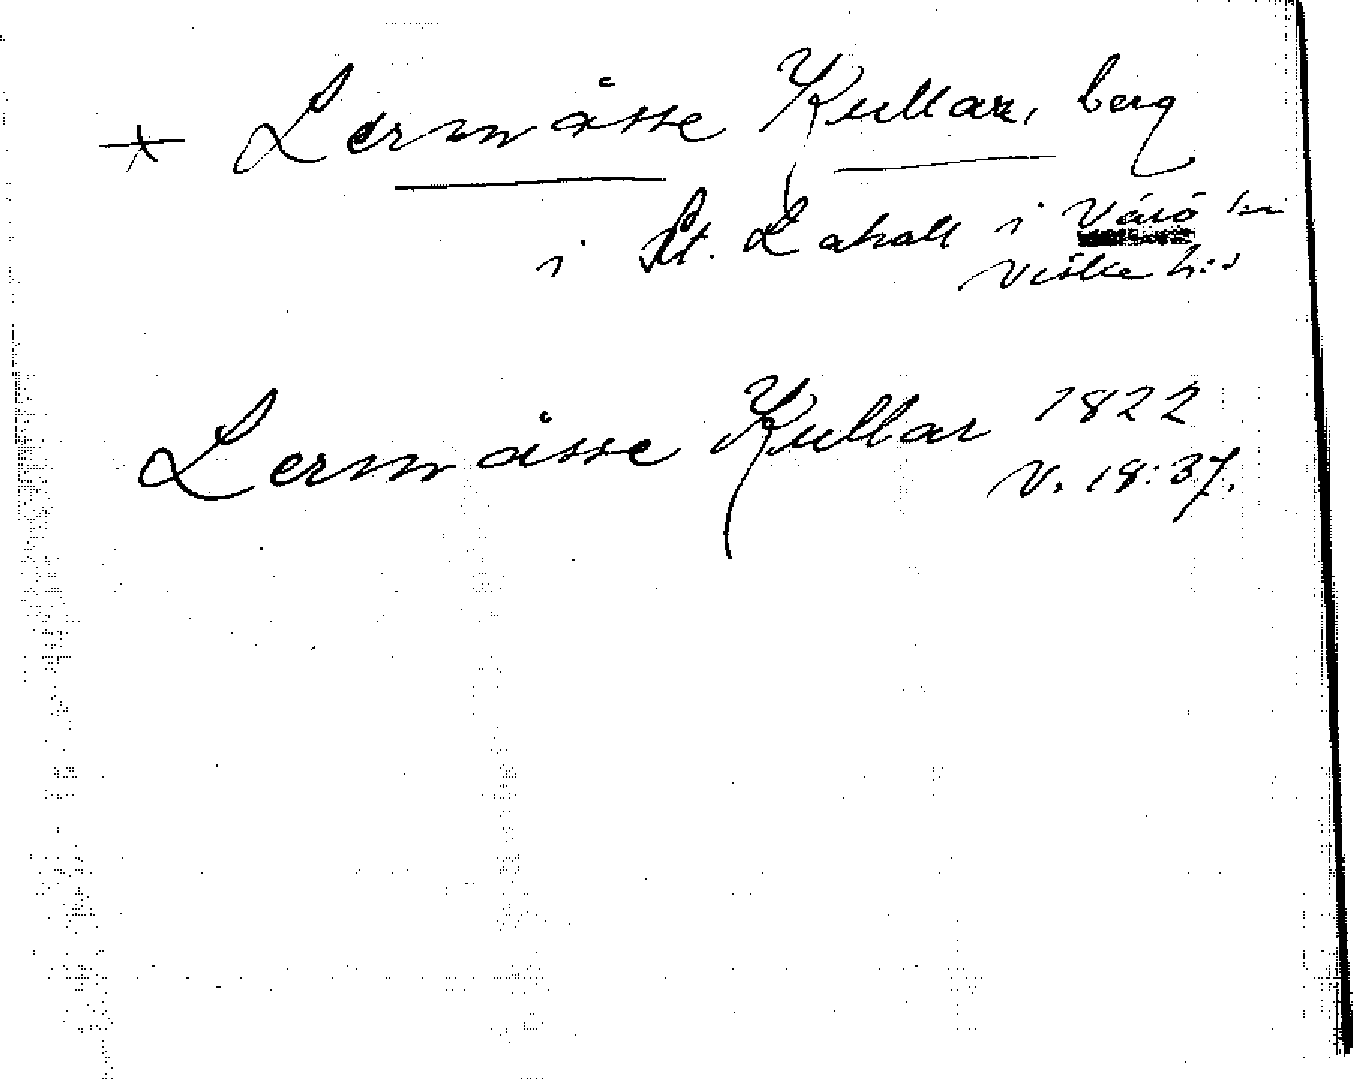 * Lermåsse Kullar, berg
i St. Lahall i Värö sn
Viske hd
Lermåsse Kullar 1822
V. 19:37.